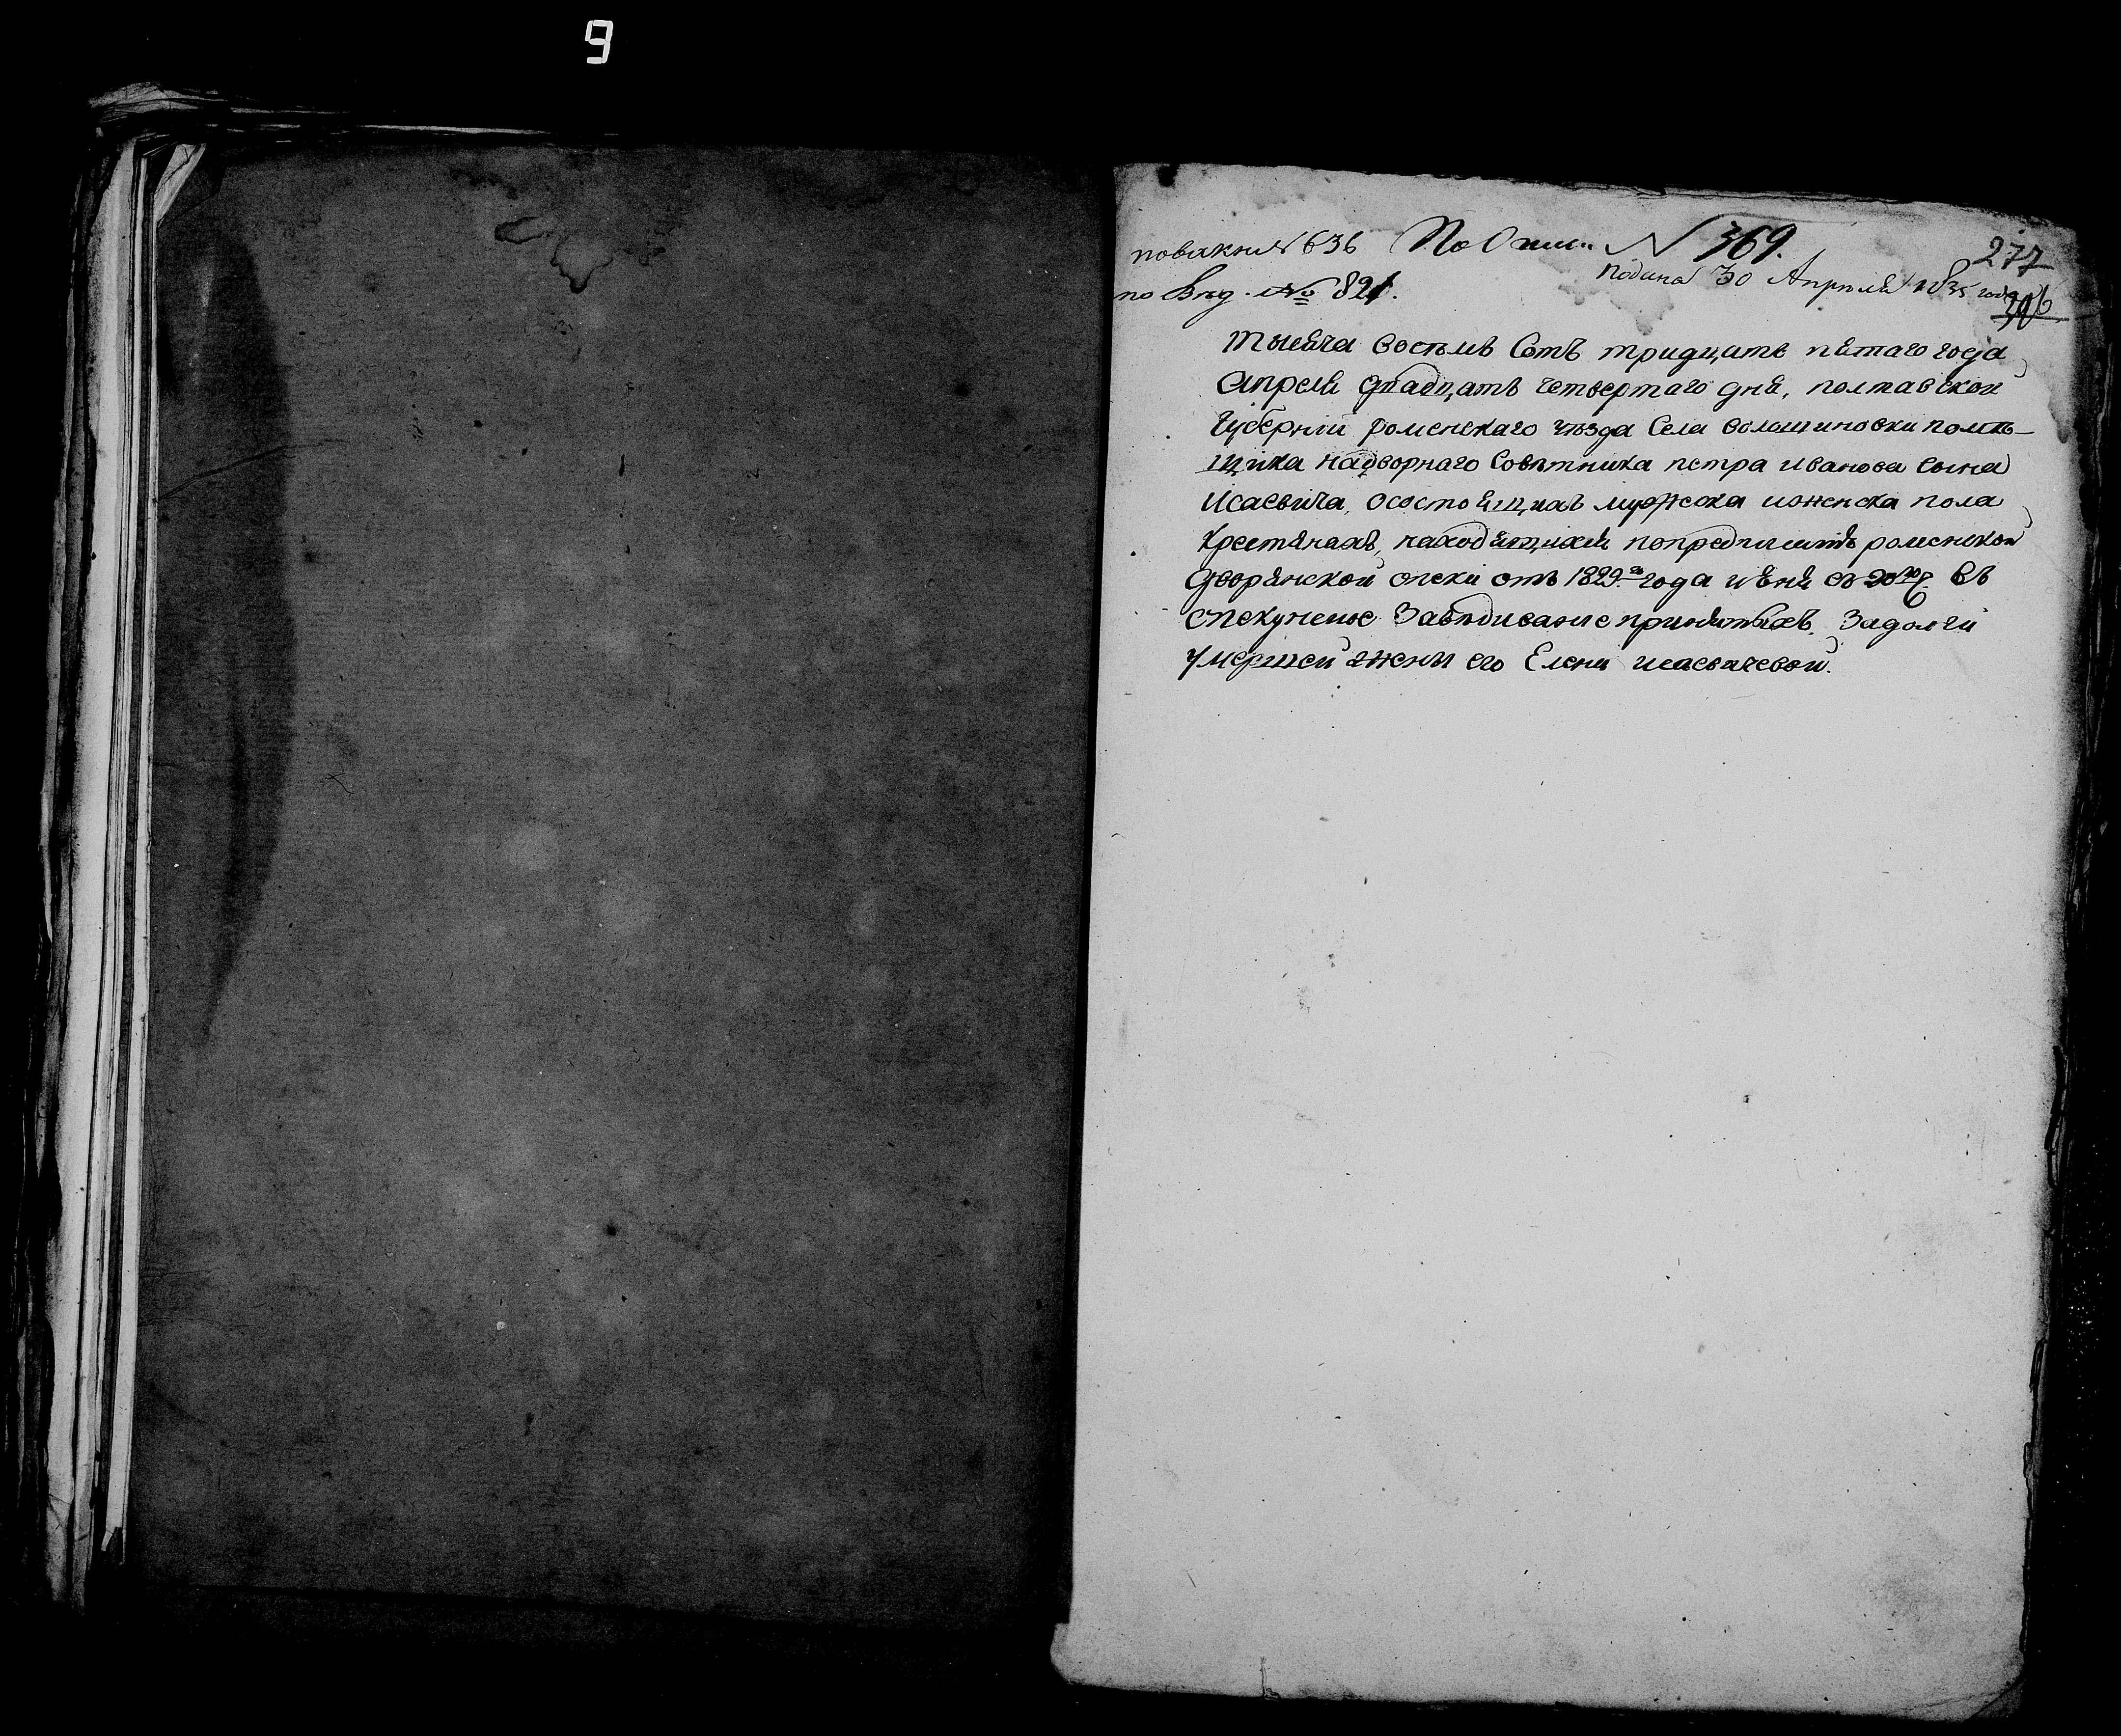 9
по Опис. N 369.
277
N 636
подана 30 Апреля 1835 года
по Вѣд. № 821.
Тысяча восемь Сотъ тридцать пятаго года
Апреля двадцать четвертаго дня, полтавской
Губерніи роменскаго уѣзда Села волошиновки помѣ-
щика надворнаго Совѣтника петра иванова сына
Исаевича, осостоящихъ мужеска иженска пола
крестянахъ, находящихся попредписанію роменской
дворянской опеки отъ 1829го года въ
опекунское Завѣдисание принятыхъ, Задолги
умершей жены его Елены исаевичевой.